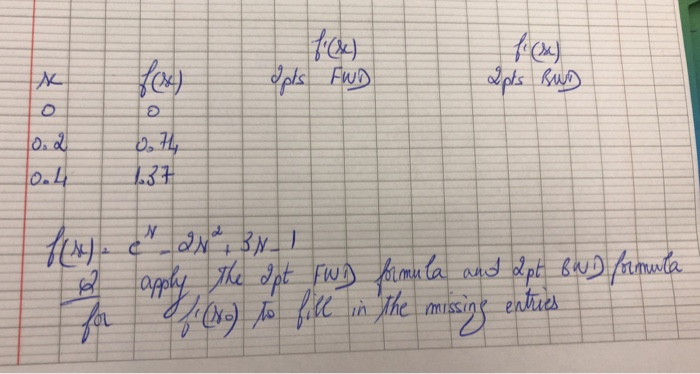 f'(x) f'(x)
x f(x) 2pts FWD 2pts BWD
0 0
0.2 0.74
0.4 1.37
f(x) = e^x - 2x² + 3x - 1
Q apply the 2pt FWD formula and 2pt BWD formula
for f'(x0) to fill in the missing entries